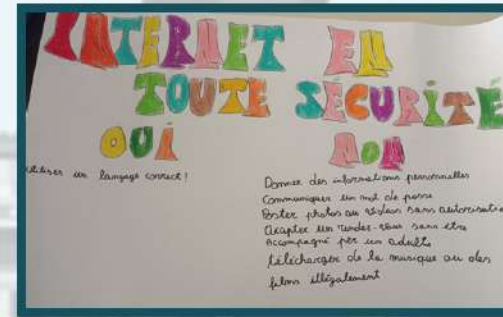 INTERNET EN
TOUTE SÉCURITÉ
OUI
NON
utiliser un langage correct!
Donner des informations personnelles
Communiquer un mot de passe
Poster photos ou vidéos sans autorisation
accepter un rendez-vous sans etre
accompagné par un adulte
télécharger de la musique ou des
films illégalement